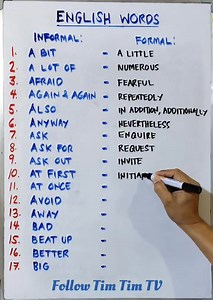 ENGLISH WORDS
INFORMAL: FORMAL:
1. A BIT - A LITTLE
2. A LOT OF - NUMEROUS
3. AFRAID - FEARFUL
4. AGAIN & AGAIN - REPEATEDLY
5. ALSO - IN ADDITION, ADDITIONALLY
6. ANYWAY - NEVERTHELESS
7. ASK - ENQUIRE
8. ASK FOR - REQUEST
9. ASK OUT - INVITE
10. AT FIRST - INITIA
11. AT ONCE -
12. AVOID -
13. AWAY -
14. BAD -
15. BEAT UP -
16. BETTER -
17. BIG -
Follow Tim Tim TV